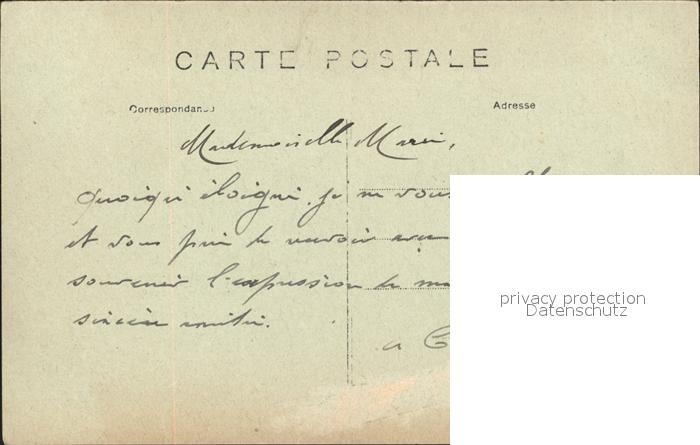 CARTE POSTALE
Correspondance
Adresse
Mademoiselle Marie,
Quoiqu'éloigné, je ne vous
et vous prie de recevoir avec
souvenir l'expression de ma
sincère amitié.
a
privacy protection
Datenschutz